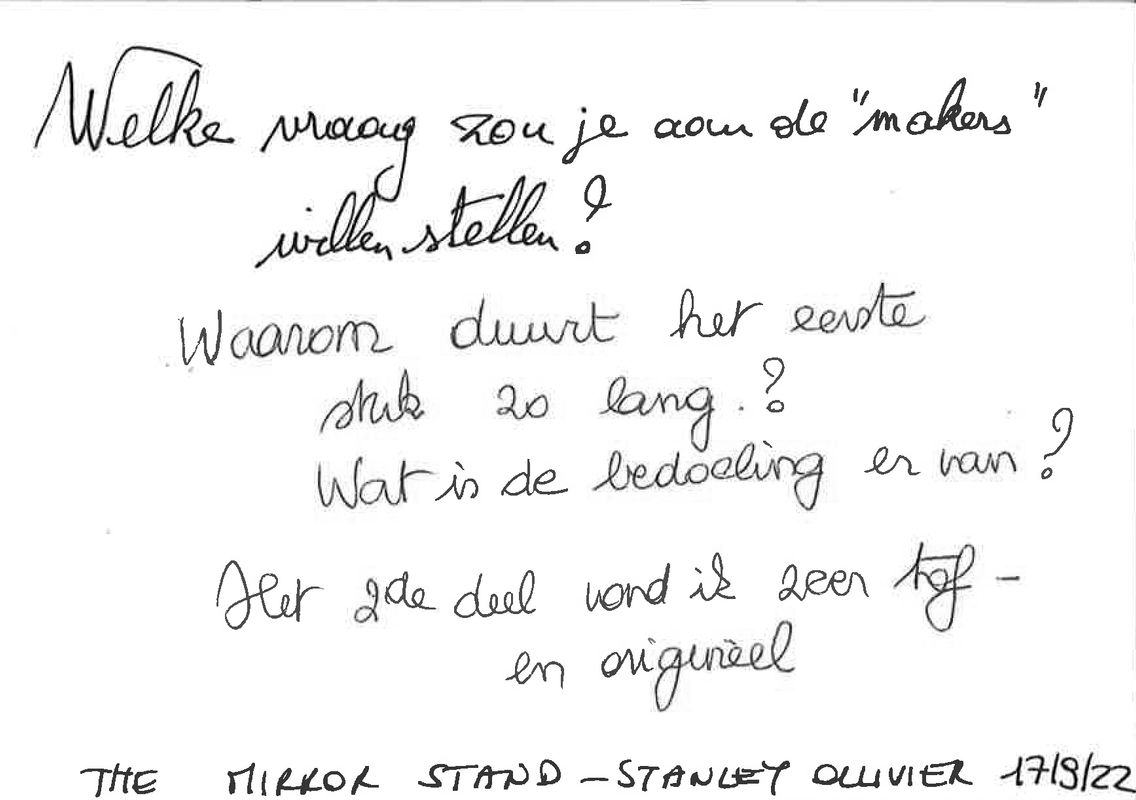 Welke vraag zou je aan de "makers"
willen stellen?
Waarom duurt het eerste
stuk zo lang.?
Wat is de bedoeling er van?
Het 2de deel vond ik zeer tof -
en origineel
THE MIRROR STAND - STANLEY OLLIVIER 17/9/22